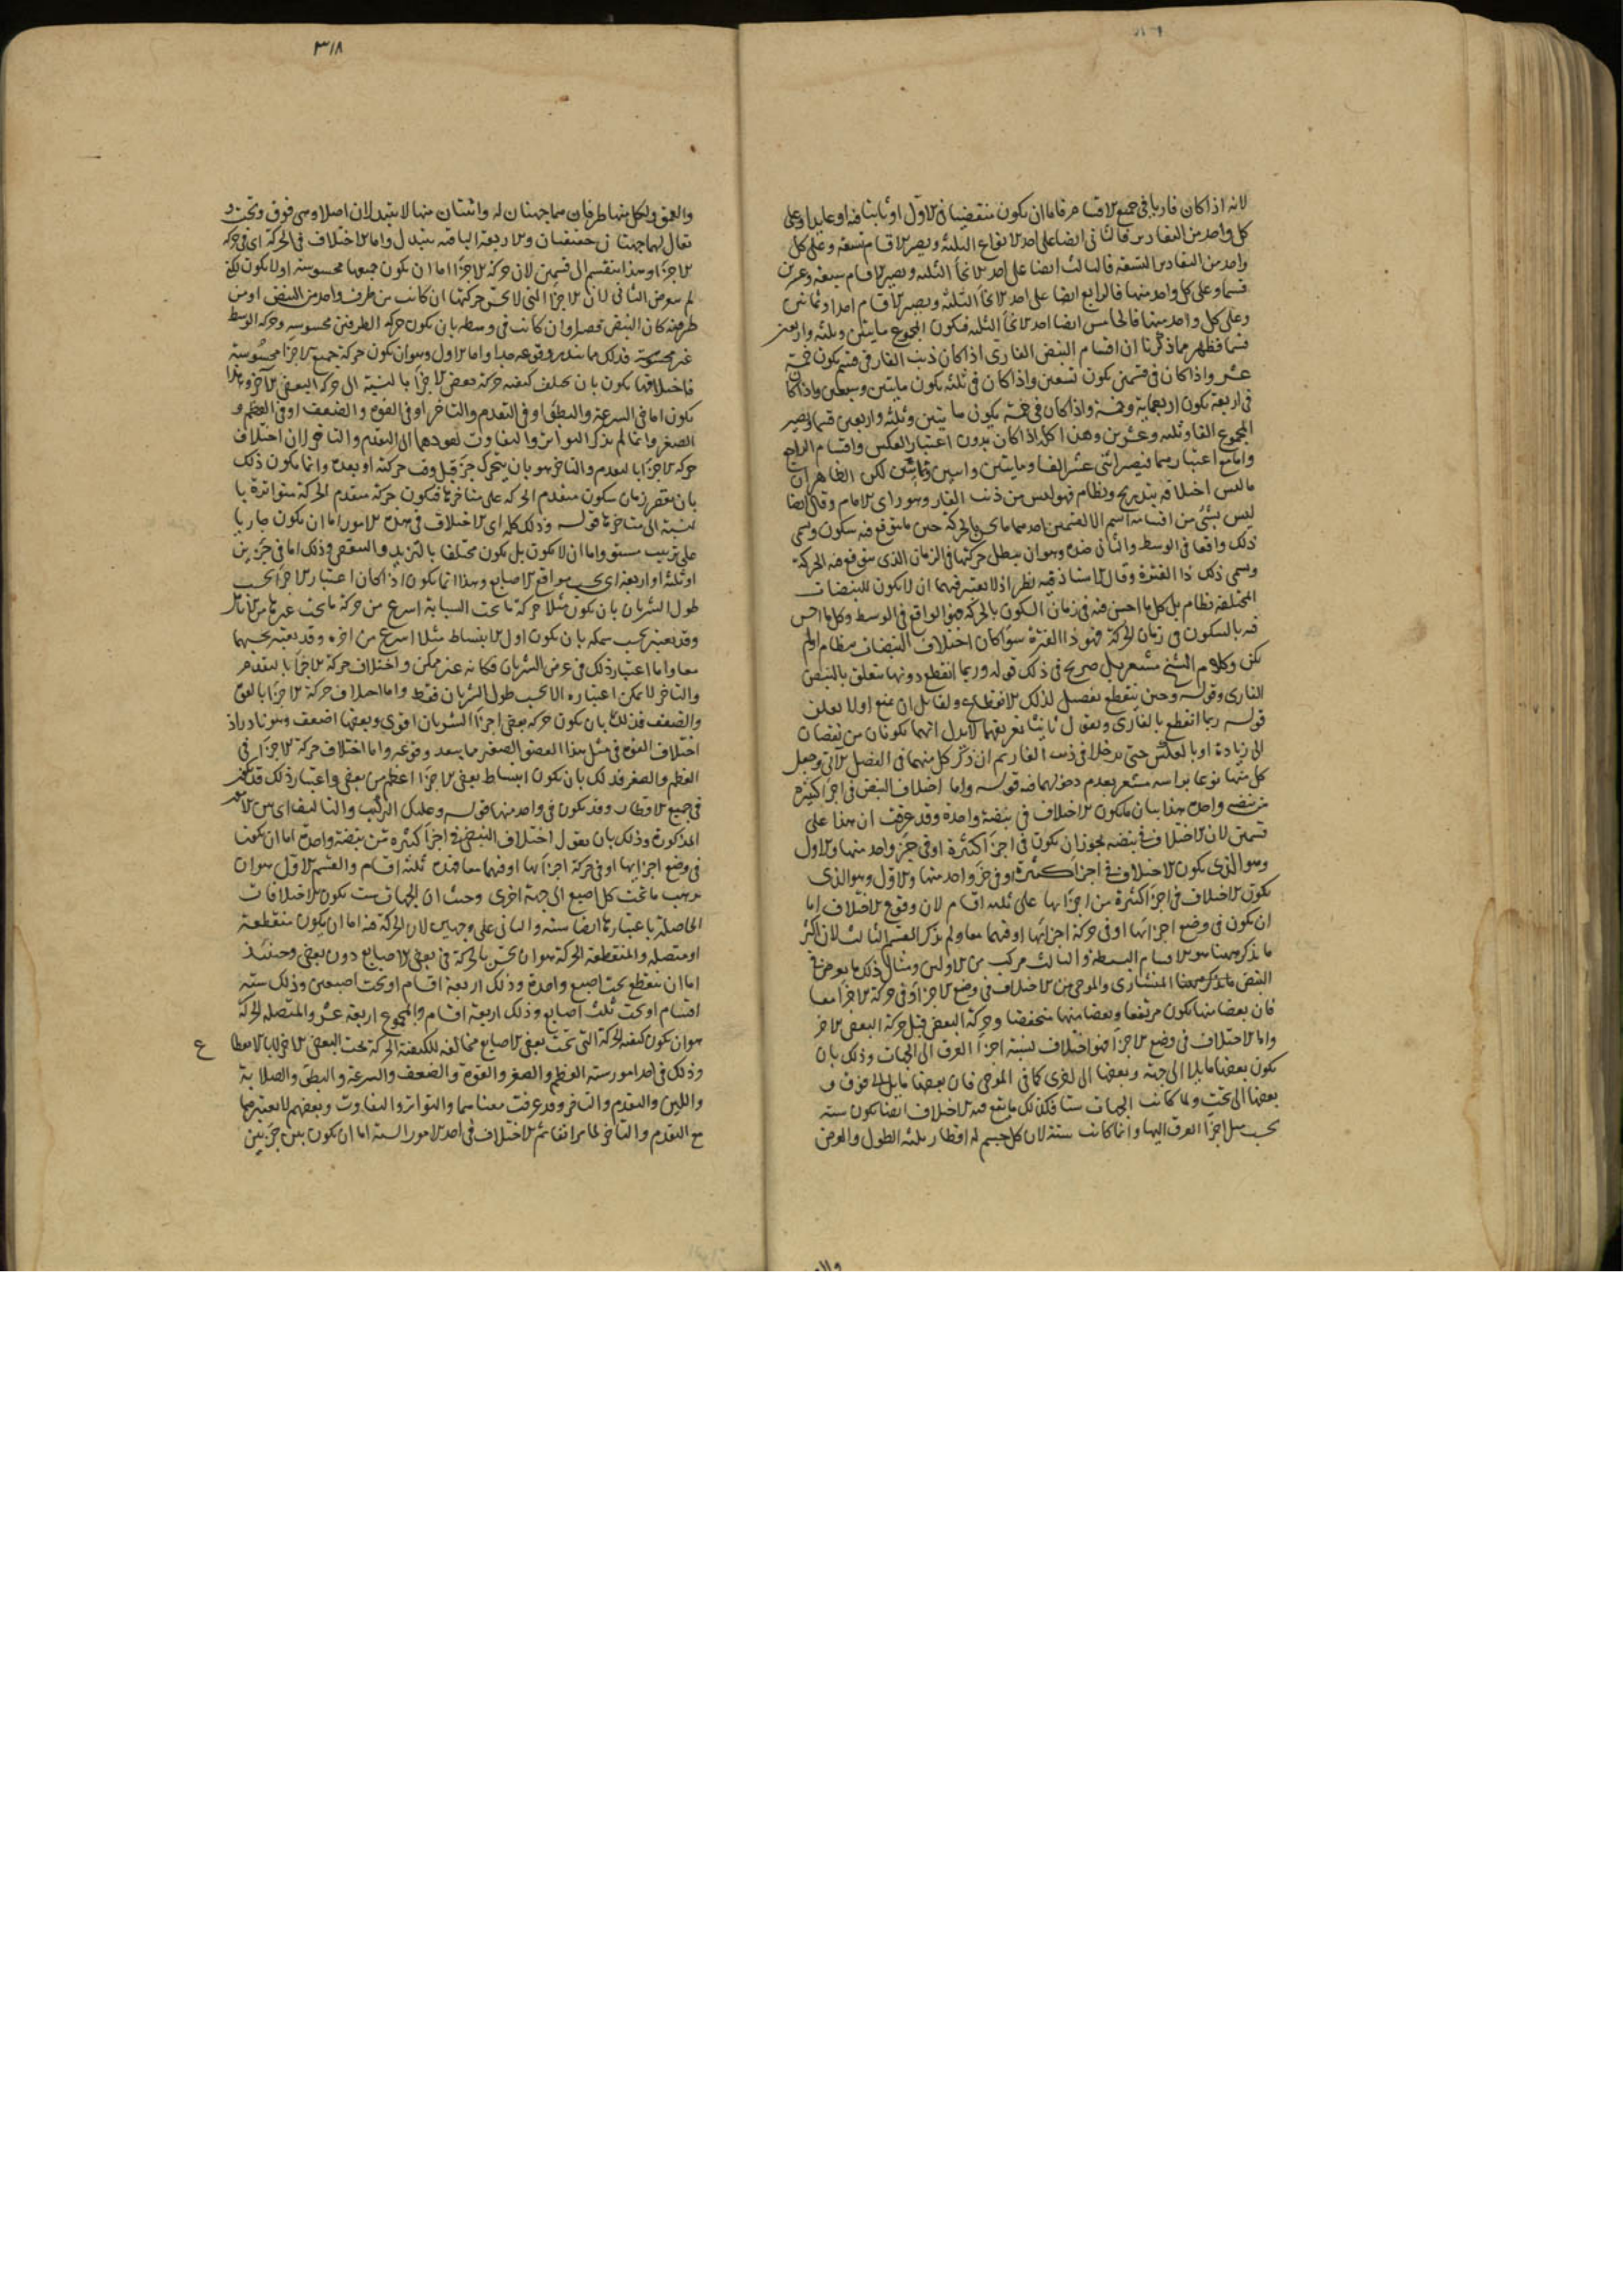 لانه اذا كان فاريا فى جميع الاقسام فاما ان يكون منقضيا فى الاول او ثابتا فيه او عايدا وعلى
كل واحد من التقادير فالثانى ايضا على احد الانواع الثلثة ويصير الاقسام تسعة وعلى كل
واحد من التقادير التسعة فالثالث ايضا على احد الانحاء الثلثة ويصير الاقسام سبعة وعشرين
قسما وعلى كل واحد منها فالرابع ايضا على احد الانحاء الثلثة ويصير الاقسام احدا وثمانين
وعلى كل واحد منها فالخامس ايضا احد الانحاء الثلثة فيكون المجموع مايتين وثلثة واربعين
قسما فظهر مما ذكرنا ان اقسام النبض الفارى اذا كان ذنب الفار فى قسم يكون خمسة
عشر واذا كان فى قسمين يكون تسعين واذا كان فى ثلثة يكون مايتين وسبعين واذا كان
فى اربعة يكون اربعماية وخمسة واذا كان فى خمسة يكون مايتين وثلثة واربعين قسما ويصير
المجموع الفا وثلثة وعشرين وهذا كله اذا كان بدون اعتبار العكس واقسام الراجع
واما مع اعتبارهما فيصير اثنى عشر الفا ومايتين و وثمانين لكن الظاهر ان
ما ليس اختلافه بتدريج ونظام فهو ليس من ذنب الفار وهو راى الامام وقال ايضا
ليس بشئ من اقسامه اسم الا لقسمين احدهما ما الحركة حين ما يتوقع فيه سكون ويسمى
ذلك واقعا فى الوسط والثانى ضده وهو ان يبطل حركتها فى الزمان الذى يتوقع فيه الحركة
ويسمى ذلك ذا الفترة وقال الاستاذ فيه نظر اذ لا يعتبر فيهما ان لا يكون للنبضات
المختلفة نظام بل كل ما احس فيه فى زمان السكون بالحركة فهو الواقع فى الوسط وكل ما احس
فيه بالسكون فى زمان الحركة فهو ذا الفترة سواء كان اختلاف النبضات بنظام او لم
يكن وكلام الشيخ مشعر بل صريح فى ذلك قوله وربما انقطع دونها متعلق بالنبض
الفارى وقوله وحين ينقطع تفصيل لذلك الانقطاع ولقايل ان يمنع اولا تعلق
قوله ربما انقطع بالفارى ويقول ثانيا تعريفهما لا يدل انهما يكونان من نقصان
الى زيادة او بالعكس حتى يدخلا فى ذنب الفار ثم ان ذكر كل منهما فى الفصل الاتى وجعل
كل منها نوعا براسه مشعر بعدم دخولهما فيه قوله واما اختلاف النبض فى اجزا كثيرة
من نبضة واحدة هذا بيان ما يكون الاختلاف فى نبضة واحدة وقد عرفت ان هذا على
قسمين لان الاختلاف فى نبضة يجوز ان يكون فى اجزا كثيرة او فى جز واحد منها والاول
وهو الذى يكون الاختلاف فى اجزا كثيرة او فى جز واحد منها والاول وهو الذى
يكون الاختلاف فى اجزا كثيرة من اجزايها على ثلثة اقسام لان وقوع الاختلاف اما
ان يكون فى وضع اجزائها او فى حركة اجزائها او فيهما معا ولم يذكر القسم الثالث لان اكثر
ما يذكر ههنا هو الاقسام البسيطة والثالث مركب من الاولين ومثال ذلك ما يعرض فى
النبض ما يذكر ههنا المنشارى والموجى من الاختلاف فى وضع الاجزا وفى حركة الاجزا معا
فان بعضا منها يكون مرتفعا وبعضا منها منخفضا وحركة البعض قبل حركة البعض الاخر
واما الاختلاف فى وضع الاجزا فهو اختلاف نسبة اجزا العرق الى الجهات وذلك بان
يكون بعضها مايلا الى جهة وبعضها الى اخرى كما فى الموجى فان بعضها مايل الى فوق و
بعضها الى تحت ولما كانت الجهات ستا فكذلك ما يقع فيه الاختلاف ايضا يكون ستة
بحسب ميل اجزا العرق اليها وانما كانت ستة لان كل جسم له اقطار ثلثة الطول والعرض
٣١٨
والعمق ولكل منها طرفان هما جهتان له واثنتان منها لا يتبدلان اصلا وهى فوق وتحت و
يقال لهما جهتان حقيقيتان والاربعة الباقية يتبدل واما الاختلاف فى الحركة اى فى حركة
الاجزا وهذا ينقسم الى قسمين لان حركة الاجزا اما ان يكون جميعها محسوسة اولا يكون لكنه
لم يتعرض الثانى لان الاجزا التى لا يحس حركتها ان كانت من طرف واحد من النبض او من
طرفيه كان النبض قصيرا وان كانت فى وسطه بان يكون حركة الطرفين محسوسة وحركة الوسط
غير محسوسة فذلك مما يندر وقوعه جدا واما الاول وهو ان يكون حركة جميع الاجزا محسوسة
فاختلافها يكون بان يختلف كيفية حركة بعض الاجزا بالنسبة الى حركة البعض الاخر وهذا
يكون اما فى السرعة والبطؤ او فى التقدم والتاخر او فى القوة والضعف او فى العظم و
الصغر وانما لم يذكر التواتر والتفاوت لعودهما الى التقدم والتاخر لان اختلاف
حركة الاجزا بالتقدم والتاخر هو بان يتحرك جز قبل وقت حركته او بعده وانما يكون ذلك
بان يقصر زمان سكون متقدم الحركة على متاخرها فيكون حركة متقدم الحركة متواترة با
لنسبة الى متاخرها قوله وذلك كله اى الاختلاف فى هذه الامور اما ان يكون جاريا
على ترتيب مستو واما ان لا يكون بل يكون مختلفا بالتزيد والتنقص وذلك اما فى جزءين
او ثلثة او اربعة اى بحسب مواقع الاصابع وهذا انما يكون اذا كان اعتبار الاجزا بحسب
طول الشريان بان يكون مثلا حركة ما تحت السبابة اسرع من حركة ما تحت غيرها من الانامل
وقد يعتبر بحسب سمكه بان يكون اول الانبساط مثلا اسرع من اخره وقد يعتبر بحسبهما
معا واما اعتبار ذلك فى عرض الشريان فكانه غير ممكن واختلاف حركة الاجزا بالتقدم
والتاخر لا يمكن اعتباره الا بحسب طول الشريان فقط واما اختلاف حركة الاجزا بالقوة
والضعف فذلك بان يكون حركة بعض اجزا الشريان اقوى وبعضها اضعف وهو نادر اذ
اختلاف القوة فى مثل هذا العضو الصغير مما يبعد وقوعه واما اختلاف حركة الاجزا فى
العظم والصغر فذلك بان يكون انبساط بعض الاجزا اعظم من بعض واعتبار ذلك قد يكون
فى جميع الاقطار وقد يكون فى واحد منها قوله وعليك التركيب والتاليف اى بين الامور
المذكورة وذلك بان يقول اختلاف النبض فى اجزا كثيرة من نبضة واحدة اما ان يكون
فى وضع اجزايها او فى حركة اجزائها او فيهما معا فهذه ثلثة اقسام والقسم الاول هو ان
يذهب ما تحت كل اصبع الى جهة اخرى وحيث ان الجهات ست يكون الاختلافات
الحاصلة باعتبارها ايضا ستة والثانى على وجهين لان الحركة فيه اما ان يكون منقطعة
او متصلة والمنقطعة الحركة هو ان يحس بالحركة فى بعض الاصابع دون بعض وحينئذ
اما ان ينقطع تحت اصبع واحدة وذلك اربعة اقسام او تحت اصبعين وذلك ستة
اقسام او تحت ثلث اصابع وذلك اربعة اقسام والمجموع اربعة عشر والمتصلة الحركة
هو ان يكون كيفية الحركة التى تحت بعض الاصابع مخالفة للكيفية الحركة تحت البعض الاخر بلا انقطاع
وذلك فى احد امور ستة العظم والصغر والقوة والضعف والسرعة والبطؤ والصلابة
واللين والتقدم والتاخر وقد عرفت معناهما والتواتر والتفاوت وبعضهم لا يعتبرهما
مع التقدم والتاخر لما مر انفا ثم الاختلاف فى احد الامور الستة اما ان يكون بين جزءين